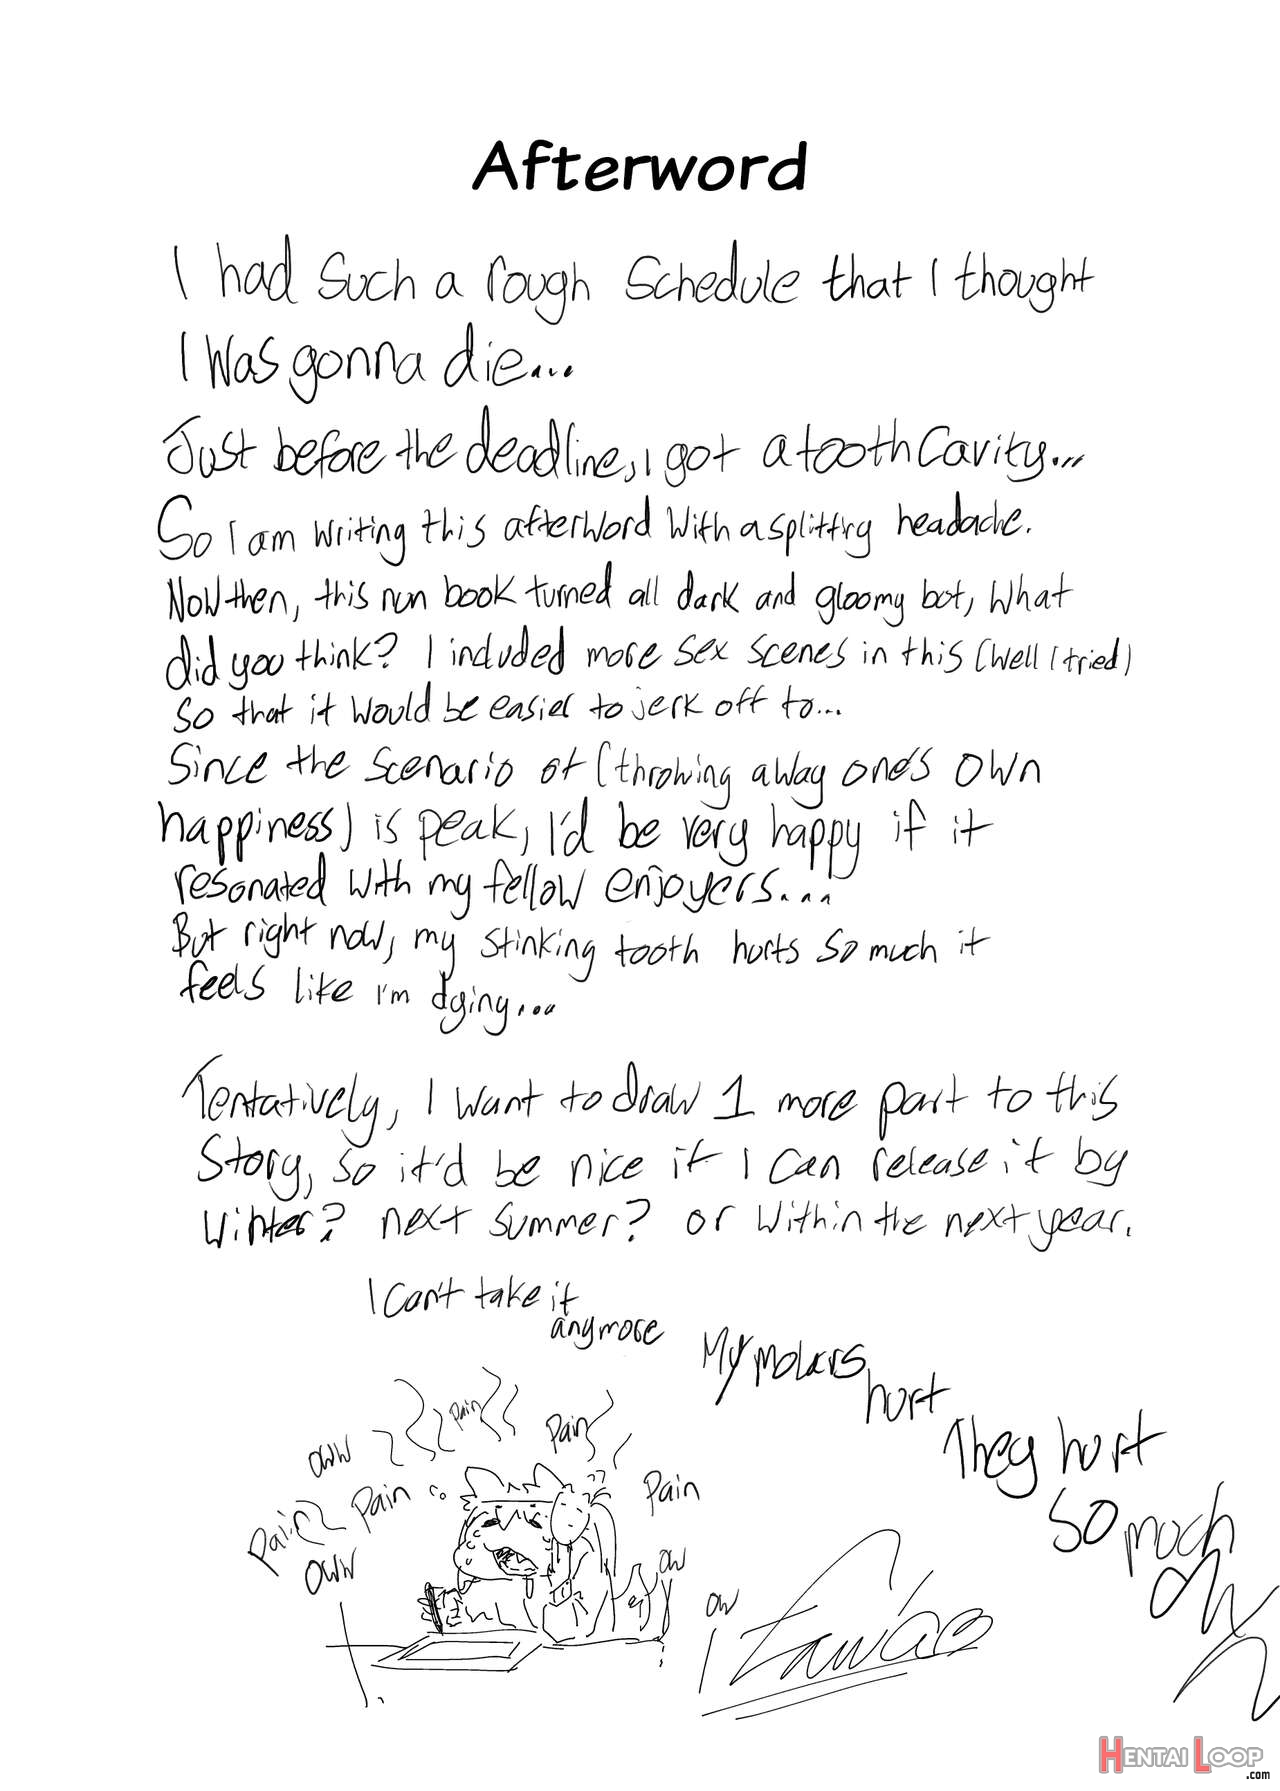 Afterword
I had such a rough schedule that I thought
I was gonna die...
Just before the deadline, I got a tooth cavity...
So I am writing this afterword with a splitting headache.
Now then, this nun book turned all dark and gloomy bot, what
did you think? I included more sex scenes in this (well I tried)
so that it would be easier to jerk off to...
Since the scenario of (throwing away one's own
happiness) is peak, I'd be very happy if it
resonated with my fellow enjoyers...
But right now, my stinking tooth hurts so much it
feels like I'm dying...
Tentatively, I want to draw 1 more part to this
story, so it'd be nice if I can release it by
winter? next summer? or within the next year.
I can't take it
anymore
My molars
hurt
They hurt
so much
oww
pain
pain
oww
pain
pain
pain
oww
ow
ow
HENTAI LOOP
.com